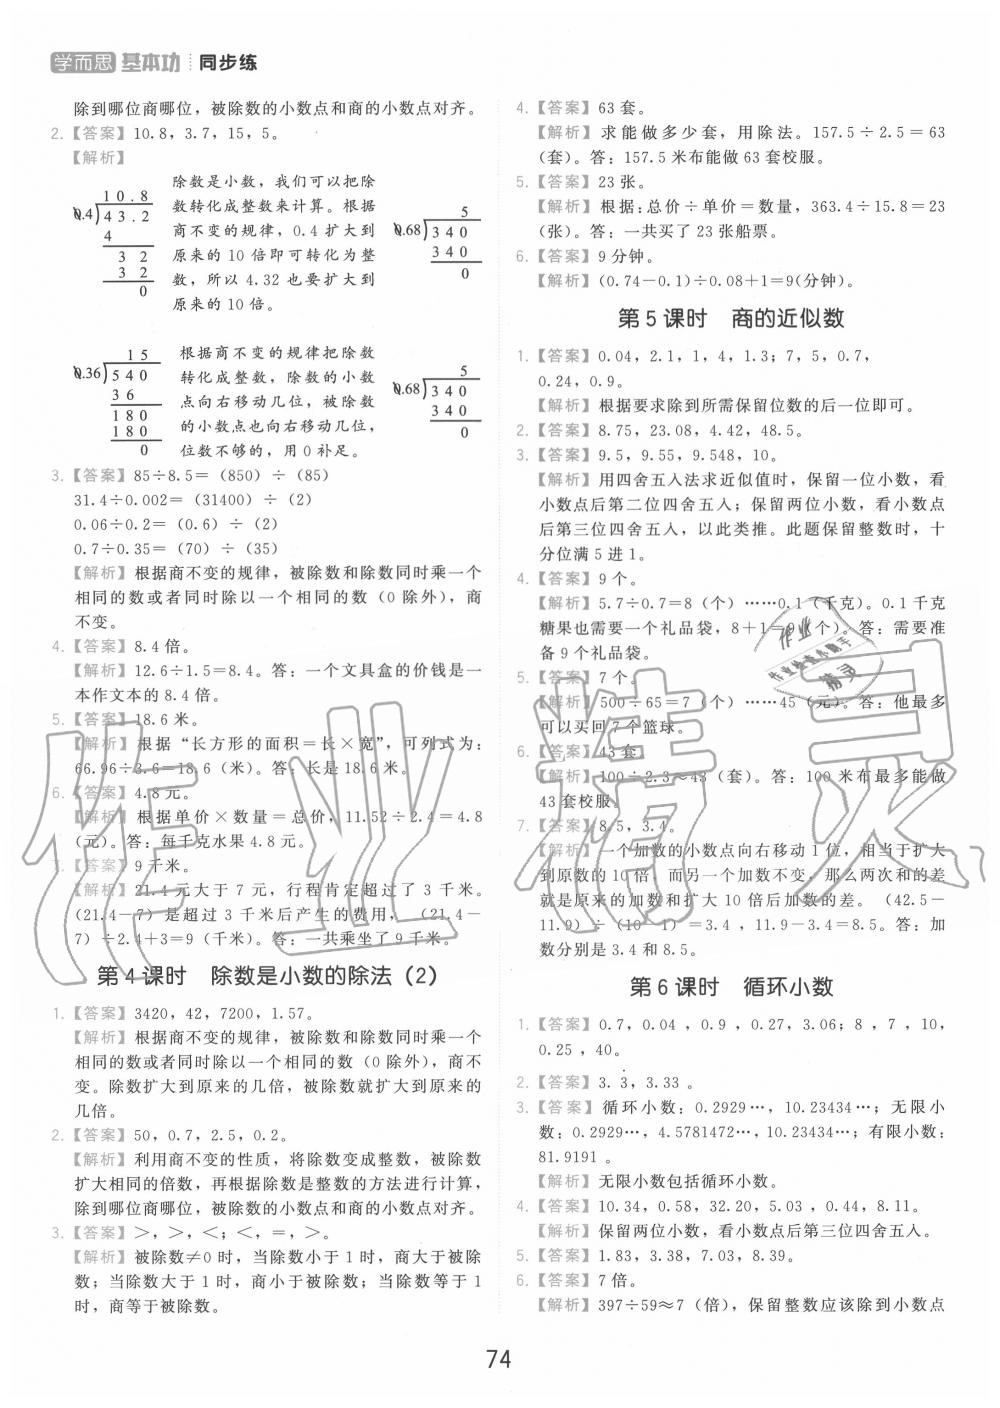 学而思 基本功 同步练
除到哪位商哪位，被除数的小数点和商的小数点对齐。
2.【答案】10.8，3.7，15，5。
【解析】
10.8
0.4)43.2
4
3 2
3 2
0
除数是小数，我们可以把除
数转化成整数来计算。根据
商不变的规律，0.4 扩大到
原来的 10 倍即可转化为整
数，所以 4.32 也要扩大到
原来的 10 倍。
5
0.68)340
340
0
15
0.36)540
36
180
180
0
根据商不变的规律把除数
转化成整数，除数的小数
点向右移动几位，被除数
的小数点也向右移动几位，
位数不够的，用 0 补足。
5
0.68)340
340
0
3.【答案】85÷8.5＝（850）÷（85）
31.4÷0.002＝（31400）÷（2）
0.06÷0.2＝（0.6）÷（2）
0.7÷0.35＝（70）÷（35）
【解析】根据商不变的规律，被除数和除数同时乘一个
相同的数或者同时除以一个相同的数（0 除外），商
不变。
4.【答案】8.4 倍。
【解析】12.6÷1.5＝8.4。答：一个文具盒的价钱是一
本作文本的 8.4 倍。
5.【答案】18.6 米。
【解析】根据“长方形的面积＝长×宽”，可列式为：
66.96÷3.6＝18.6（米）。答：长是 18.6 米。
6.【答案】4.8 元。
【解析】根据单价×数量＝总价，11.52÷2.4＝4.8
（元）。答：每千克水果 4.8 元。
7.【答案】9 千米。
【解析】21.4 元大于 7 元，行程肯定超过了 3 千米。
（21.4－7）是超过 3 千米后产生的费用，（21.4－
7）÷2.4＋3＝9（千米）。答：一共乘坐了 9 千米。
第 4 课时 除数是小数的除法（2）
1.【答案】3420，42，7200，1.57。
【解析】根据商不变的规律，被除数和除数同时乘一个
相同的数或者同时除以一个相同的数（0 除外），商不
变。除数扩大到原来的几倍，被除数就扩大到原来的
几倍。
2.【答案】50，0.7，2.5，0.2。
【解析】利用商不变的性质，将除数变成整数，被除数
扩大相同的倍数，再根据除数是整数的方法进行计算，
除到哪位商哪位，被除数的小数点和商的小数点对齐。
3.【答案】＞，＞，＜；＜，＝，＞。
【解析】被除数≠0 时，当除数小于 1 时，商大于被除
数；当除数大于 1 时，商小于被除数；当除数等于 1
时，商等于被除数。
4.【答案】63 套。
【解析】求能做多少套，用除法。157.5÷2.5＝63
（套）。答：157.5 米布能做 63 套校服。
5.【答案】23 张。
【解析】根据：总价÷单价＝数量，363.4÷15.8＝23
（张）。答：一共买了 23 张船票。
6.【答案】9 分钟。
【解析】（0.74－0.1）÷0.08＋1＝9（分钟）。
第 5 课时 商的近似数
1.【答案】0.04，2.1，1，4，1.3；7，5，0.7，
0.24，0.9。
【解析】根据要求除到所需保留位数的后一位即可。
2.【答案】8.75，23.08，4.42，48.5。
3.【答案】9.5，9.55，9.548，10。
【解析】用四舍五入法求近似值时，保留一位小数，看
小数点后第二位四舍五入；保留两位小数，看小数点
后第三位四舍五入，以此类推。此题保留整数时，十
分位满 5 进 1。
4.【答案】9 个。
【解析】5.7÷0.7＝8（个）……0.1（千克）。0.1 千克
糖果也需要一个礼品袋，8＋1＝9（个）。答：需要准
备 9 个礼品袋。
5.【答案】7 个。
【解析】500÷65＝7（个）……45（元）。答：他最多
可以买回 7 个篮球。
6.【答案】43 套。
【解析】100÷2.3≈43（套）。答：100 米布最多能做
43 套校服。
7.【答案】8.5，3.4。
【解析】一个加数的小数点向右移动 1 位，相当于扩大
到原数的 10 倍，而另一个加数不变，那么两次和的差
就是原来的加数和扩大 10 倍后加数的差。（42.5－
11.9）÷（10－1）＝3.4，11.9－3.4＝8.5。答：加
数分别是 3.4 和 8.5。
第 6 课时 循环小数
1.【答案】0.7，0.04，0.9，0.27，3.06；8，7，10，
0.25，40。
2.【答案】3.3̇，3.33。
3.【答案】循环小数：0.2929…，10.23434…；无限小
数：0.2929…，4.5781472…，10.23434…；有限小数：
81.9191。
【解析】无限小数包括循环小数。
4.【答案】10.34，0.58，32.20，5.03，0.44，8.11。
【解析】保留两位小数，看小数点后第三位四舍五入。
5.【答案】1.83，3.38，7.03，8.39。
6.【答案】7 倍。
【解析】397÷59≈7（倍），保留整数应该除到小数点
74
作业精灵
作业
作业检查小助手
精灵